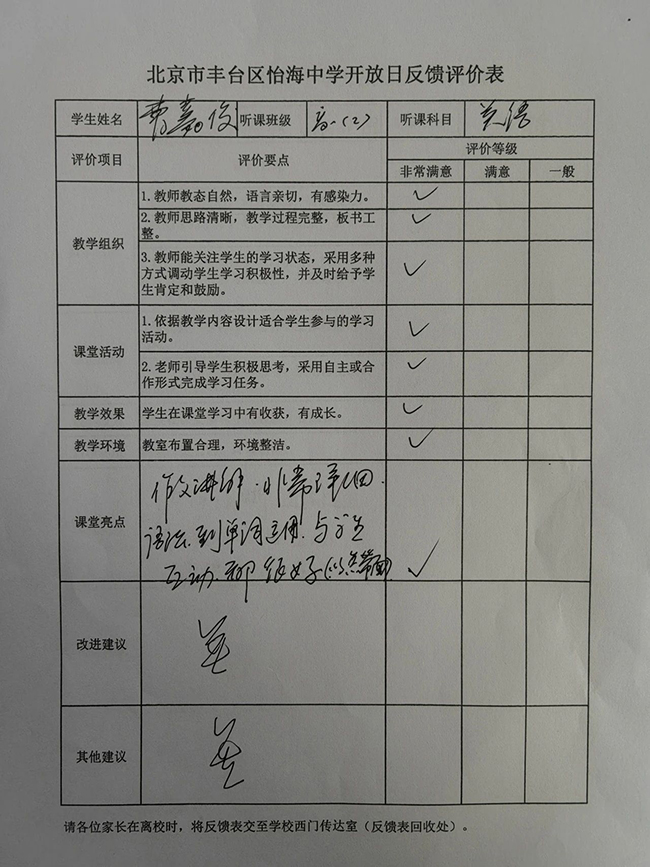 北京市丰台区怡海中学开放日反馈评价表
学生姓名 曹嘉俊 听课班级 高一(2) 听课科目 英语
评价项目 评价要点 评价等级
非常满意 满意 一般
教学组织
1.教师教态自然，语言亲切，有感染力。 ✓
2.教师思路清晰，教学过程完整，板书工
整。 ✓
3.教师能关注学生的学习状态，采用多种
方式调动学生学习积极性，并及时给予学
生肯定和鼓励。 ✓
课堂活动
1.依据教学内容设计适合学生参与的学习
活动。 ✓
2.老师引导学生积极思考，采用自主或合
作形式完成学习任务。 ✓
教学效果 学生在课堂学习中有收获，有成长。 ✓
教学环境 教室布置合理，环境整洁。 ✓
课堂亮点
作文讲解.非常详细.
语法.到单词运用.与学生
互动.都很好 ✓
改进建议 无
其他建议 无
请各位家长在离校时，将反馈表交至学校西门传达室（反馈表回收处）。